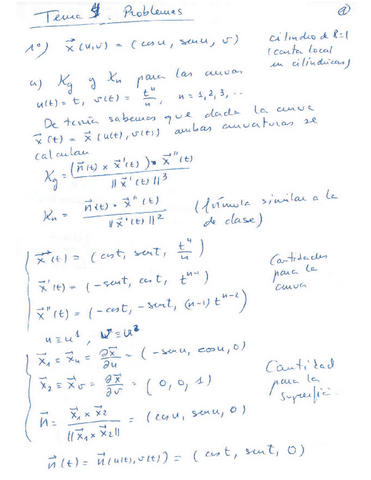 Tema 4. Problemas
1º) x⃗(u,v) = (cosu, senu, v)
cilindro de R=1
(carta local
en cilíndricas)
a) Kg y Kn para las curvas
u(t) = t, v(t) = t^n/n, n = 1,2,3,...
De teoría sabemos que dada la curva
x⃗(t) = x⃗(u(t), v(t)) ambas curvaturas se
calculan
Kg = (n⃗(t) × x⃗'(t)) · x⃗''(t) / ||x⃗'(t)||³
Kn = n⃗(t) · x⃗''(t) / ||x⃗'(t)||²
(fórmula similar a la
de clase)
x⃗(t) = (cost, sent, t^n/n)
x⃗'(t) = (-sent, cost, t^(n-1))
x⃗''(t) = (-cost, -sent, (n-1) t^(n-2))
Cantidades
para la
curva
u ≡ u¹, v ≡ u²
x⃗₁ ≡ x⃗u = ∂x⃗/∂u = (-senu, cosu, 0)
x⃗₂ ≡ x⃗v = ∂x⃗/∂v = (0, 0, 1)
n⃗ = x⃗₁ × x⃗₂ / ||x⃗₁ × x⃗₂|| = (cosu, senu, 0)
Cantidad
para la
superficie
n⃗(t) = n⃗(u(t), v(t)) = (cost, sent, 0)